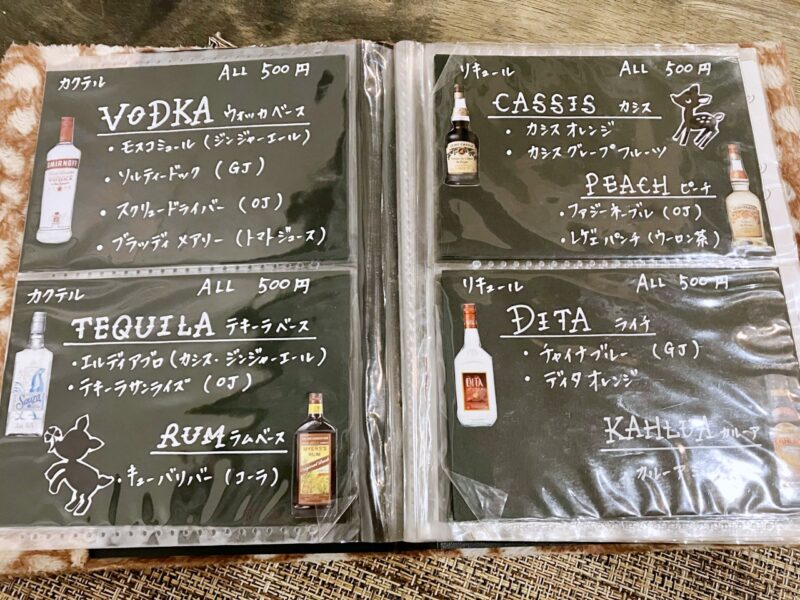 カクテル ALL 500円
VODKA ウォッカベース
・モスコミュール (ジンジャーエール)
・ソルティードック (GJ)
・スクリュードライバー (OJ)
・ブラッディ メアリー (トマトジュース)
SMIRNOFF
VODKA
カクテル ALL 500円
TEQUILA テキーラベース
・エルディアブロ (カシス・ジンジャーエール)
・テキーラサンライズ (OJ)
Sauza
RUM ラムベース
・キューバリバー (コーラ)
MYERS'S
RUM
リキュール ALL 500円
CASSIS カシス
・カシスオレンジ
・カシスグレープフルーツ
PEACH ピーチ
・ファジーネーブル (OJ)
・レゲエパンチ (ウーロン茶)
リキュール ALL 500円
DITA ライチ
・チャイナブルー (GJ)
・ディタオレンジ
DITA
KAHLUA カルーア
カルーア